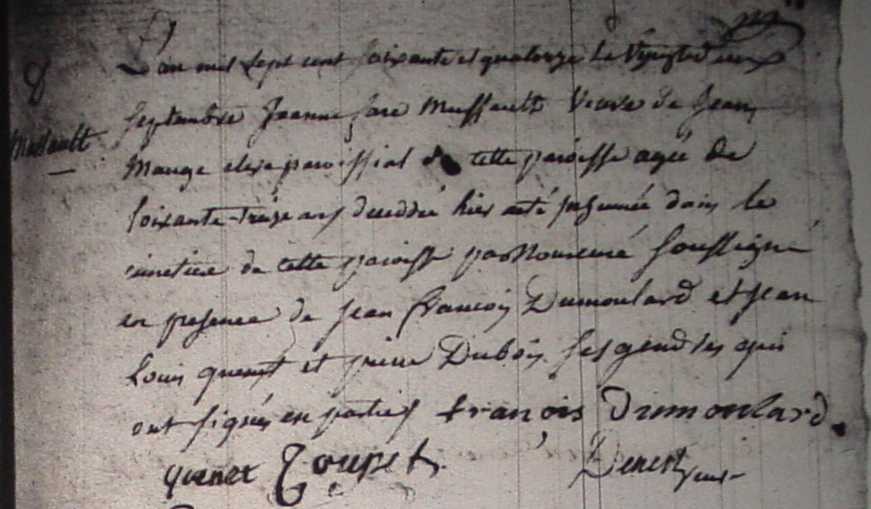 L'an mil sept cent soixante et quatorze le Vingtdeux
8
septembre Jeanne Mussault Veuve de Jean
Mussault
Mauge clerc paroissial de cette paroisse agée de
soixante-treize ans decedée hier a eté inhumée dans le
cimetiere de cette paroisse par Nous curé soussigné
en presence de Jean francois Dumoulard et Jean
Louis quenet et pierre Dubois ses gendres qui
ont signés en partie françois dumoulard
quenet Toupet